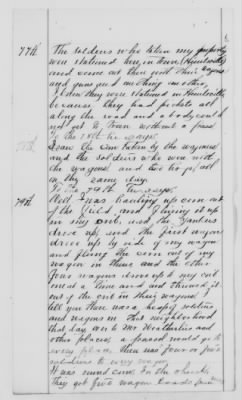 77th The soldiers who taken my property
were stationed here, in town (Huntsville)
and come out there with their wagons
and guns and anything in other.
I knew they were stationed in Huntsville
because they had pickets all
along the road and a body could
not get to town without a pass
To the 78th he says.
I saw the corn taken by the wagons
and the soldiers who were with
the wagons, and two or
on the same day.
To the 79th he says.
79th Well I was hauling up corn out
of the field, and flinging it up
in my crib, and the Yankees
drove up, and the first wagon
drove up by side of my wagon
and flung the corn out of my
wagon in theirs and the other
four wagons drove up to my crib
and a time and throwed it
out of the crib in their wagons. I
tell you there was a heap of soldiers
and wagons in that neighborhood
that day over to Mr Weatherlies and
other places, a passel would go to
every place, there was four or five
soldiers to every wagon.
It was round corn. In the shuck
they got five wagon loads